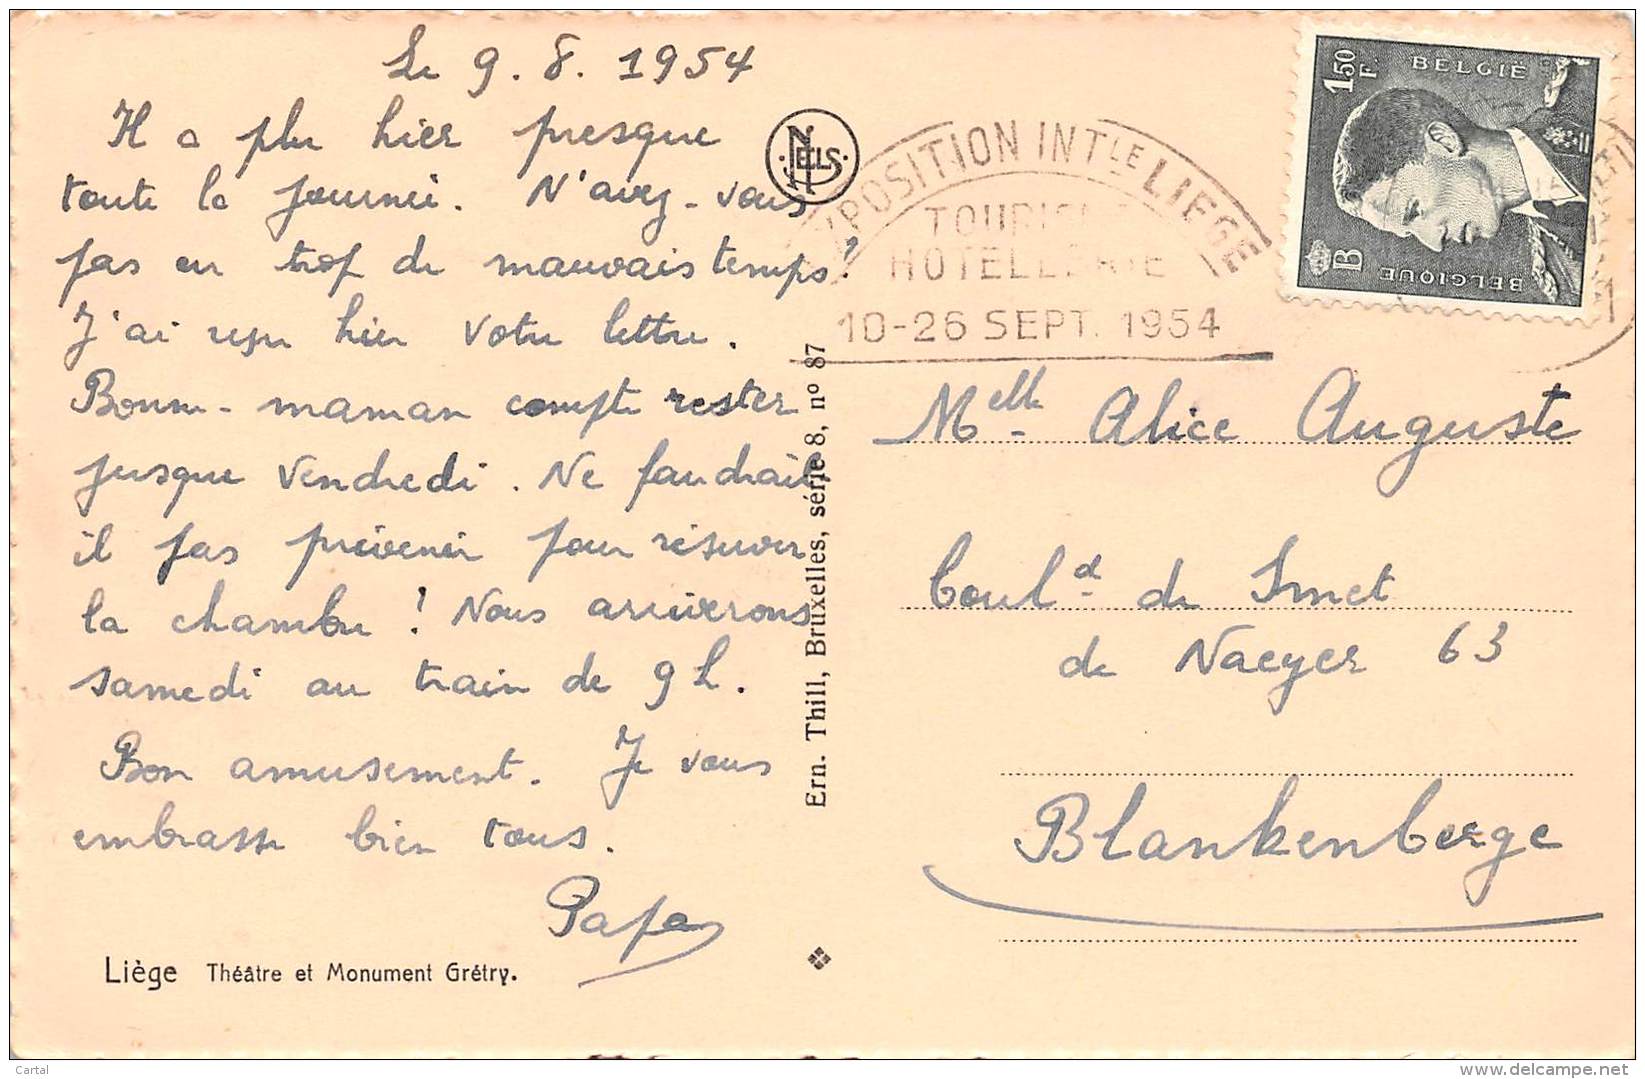 Le 9.8.1954
Il a plu hier presque
toute la journée. N'avez-vous
pas eu trop de mauvais temps?
J'ai reçu hier votre lettre.
Bonne-maman compte rester
jusque vendredi. Ne faudrait
il pas prévenir pour réserver
la chambre! Nous arriverons
samedi au train de 9 h.
Bon amusement. Je vous
embrasse bien tous.
Papa
Liège Théâtre et Monument Grétry.
NELS
Ern. Thill, Bruxelles, série 8, nº 87
EXPOSITION INTLE LIEGE
TOURISME
HOTELLERIE
10-26 SEPT. 1954
1.50 F.
BELGIË
B
BELGIQUE
Melle Alice Auguste
Boul.d de Smet
de Naeyer 63
Blankenberge
Cartal
delcampe.net